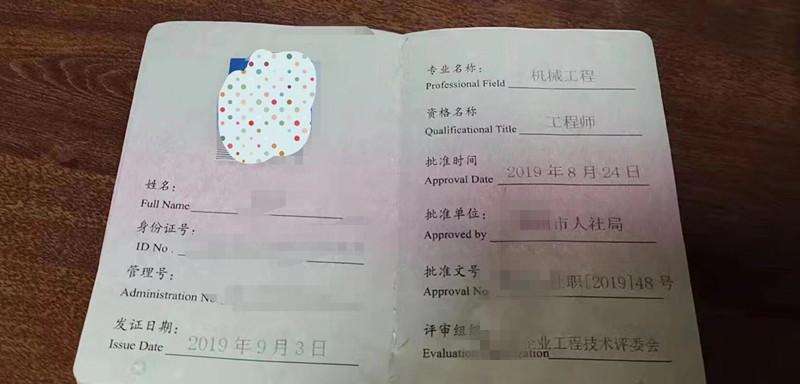 姓名：
Full Name
身份证号：
ID No
管理号：
Administration No
发证日期：
Issue Date 2019年9月3日
专业名称：
Professional Field 机械工程
资格名称
Qualificational Title 工程师
批准时间
Approval Date 2019年8月24日
批准单位：
Approved by 市人社局
批准文号
Approval No 职[2019]48号
评审组织
Evaluation 企业工程技术评委会